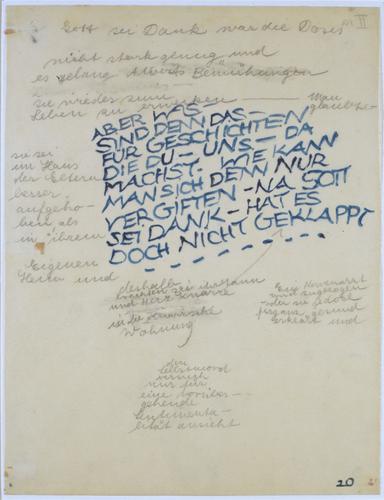 Gott sei Dank war die Dosis
nicht stark genug und
es gelang Alberts Bemühungen
sie wieder zum
Leben zu erwecken — Man
glaubte —
ABER WAS
SIND DENN DAS —
FÜR GESCHICHTEN
DIE DU — UNS — DA
MACHST. WIE KANN
MAN SICH DENN NUR
VERGIFTEN — NA GOTT
SEI DANK — HAT ES
DOCH NICHT GEKLAPPT
sie sei
im Haus
der Eltern
besser
aufgeho-
ben als
in ihrem
Eigenen
Heim und
deshalb
und Herr Knarre
in die
Wohnung
Ein Nervenarzt
wird zugezogen
der sie jedoch
für ganz gesund
erklärt und
den
Selbstmord
versuch
nur für
eine vorüber-
gehende
Sentimenta-
lität ansieht
20